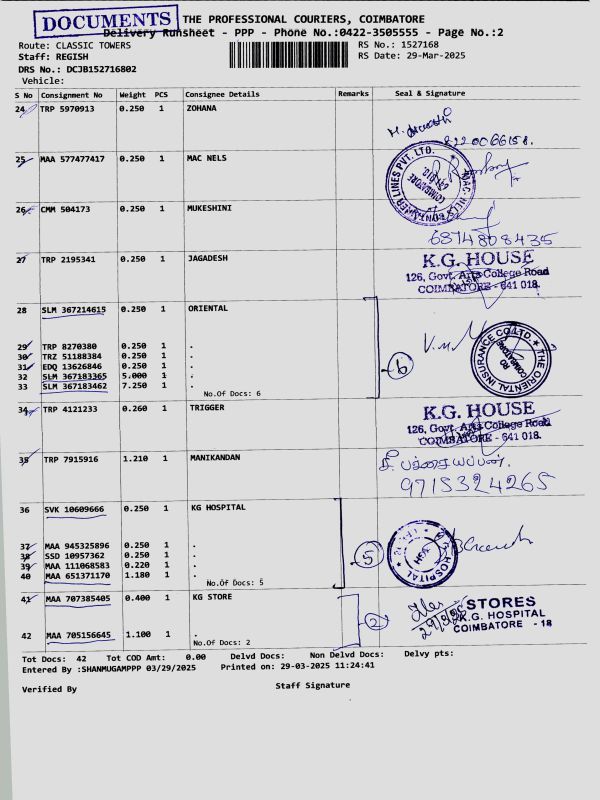 DOCUMENTS
THE PROFESSIONAL COURIERS, COIMBATORE
Delivery Runsheet - PPP - Phone No.:0422-3505555 - Page No.:2
Route: CLASSIC TOWERS
RS No.: 1527168
Staff: REGISH
RS Date: 29-Mar-2025
DRS No.: DCJB152716802
Vehicle:
S No Consignment No Weight PCS Consignee Details Remarks Seal & Signature
24 TRP 5970913 0.250 1 ZOHANA
8220066158.
25 MAA 577477417 0.250 1 MAC NELS
26 CMM 504173 0.250 1 MUKESHINI
6374808435
27 TRP 2195341 0.250 1 JAGADESH
K.G. HOUSE
126, Govt. Arts College Road
COIMBATORE - 641 018.
28 SLM 367214615 0.250 1 ORIENTAL
29 TRP 8270380 0.250 1 .
30 TRZ 51188384 0.250 1 .
31 EDQ 13626846 0.250 1 .
32 SLM 367183365 5.000 1 .
33 SLM 367183462 7.250 1 .
No.Of Docs: 6
6
THE ORIENTAL INSURANCE CO LTD.
RO
COIMBATORE
34 TRP 4121233 0.260 1 TRIGGER
K.G. HOUSE
126, Govt. Arts College Road
COIMBATORE - 641 018.
35 TRP 7915916 1.210 1 MANIKANDAN
சி. பச்சையப்பன்.
9715324265
36 SVK 10609666 0.250 1 KG HOSPITAL
37 MAA 945325896 0.250 1 .
38 SSD 10957362 0.250 1 .
39 MAA 111068583 0.220 1 .
40 MAA 651371170 1.180 1 .
No.Of Docs: 5
5
41 MAA 707385405 0.400 1 KG STORE
42 MAA 705156645 1.100 1 .
No.Of Docs: 2
2
STORES
K.G. HOSPITAL
COIMBATORE - 18
Tot Docs: 42 Tot COD Amt: 0.00 Delvd Docs: Non Delvd Docs: Delvy pts:
Entered By :SHANMUGAMPPP 03/29/2025 Printed on: 29-03-2025 11:24:41
Verified By
Staff Signature